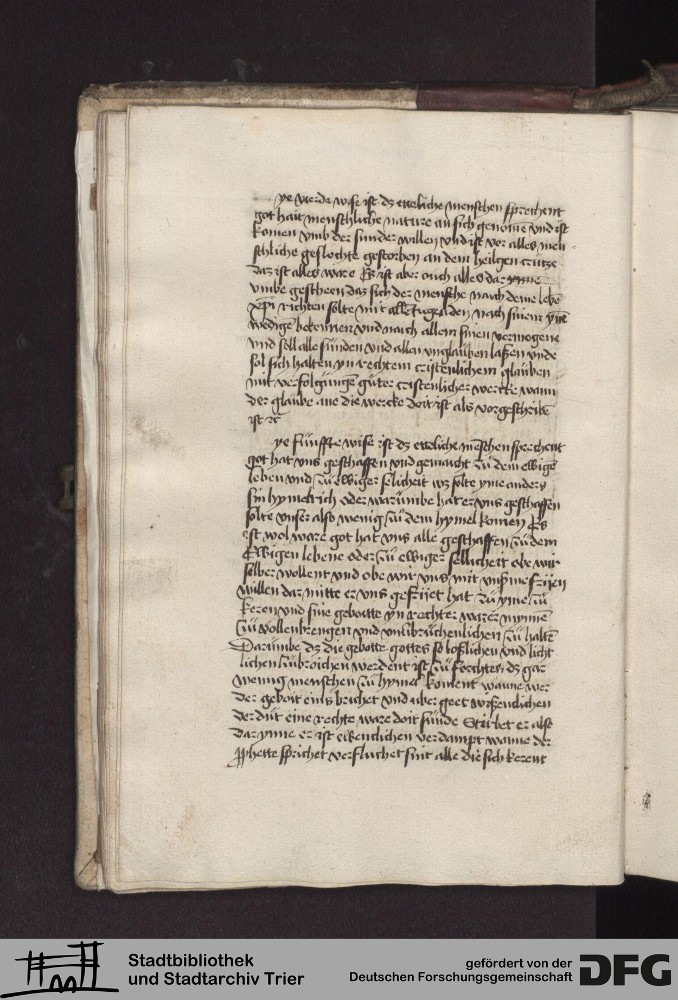 ye vierde wise ist dz etteliche menschen sprechent
got hait menschliche nature an sich genome vnd ist
komen vmb der sunder willen vnd ist vor alles men
schliche geslechte gestorben an dem heilgen crutze
daz ist alles ware Es ist aber auch alles dar ynne
vmbe gescheen daz sich der mensche nach deme lebē
xpi richten solte mit allē tugenden nach sinem
bekennen vnd nach allem sinen vermogene
vnd soll alle sunden vnd allen vnglauben laßen vnde
sol sich halten yn rechtem cristenlichem glauben
mit verfolgungē guter cristenlicher wercke wann
der glaube ane die wercke doit ist als vorgeschribē
ist
ye funffte wise ist dz etteliche mēschen sprechent
got hat vns geschaffen vnd gemacht zu dem ewigē
leben vnd zu ewiger selicheit wz solte yme anders
sin hymelrich oder warumbe hat er vns geschaffen
solte vnser also wenig zu dem hymel komen Es
ist wol ware got hat vns alle geschaffen zu dem
Ewigen lebene oder zu ewiger sellicheit obe wir
selber wollent vnd obe wir vns mit vnßme frijen
willen dar mitte er vns gefrijet hat zu yme zu
keren vnd sine gebotte yn rechter warer mynnē
zu vollenbrengen vnd vnübruchenlichen zu haltē
Darumbe dz die gebotte gottes so loslichen vnd licht
lichen zubrochen werdent ist zu forchten dz gar
wenig menschen zu hymel koment wanne wer
der gebott eins brichet vnd uber geet wißenclichen
der dut eine rechte ware doit sunde Stirbet er also
dar ynne er ist ewenclichen verdampt wanne der
pphette sprichet verfluchet sint alle die sich kerent
Stadtbibliothek
und Stadtarchiv Trier
gefördert von der
Deutschen Forschungsgemeinschaft
DFG